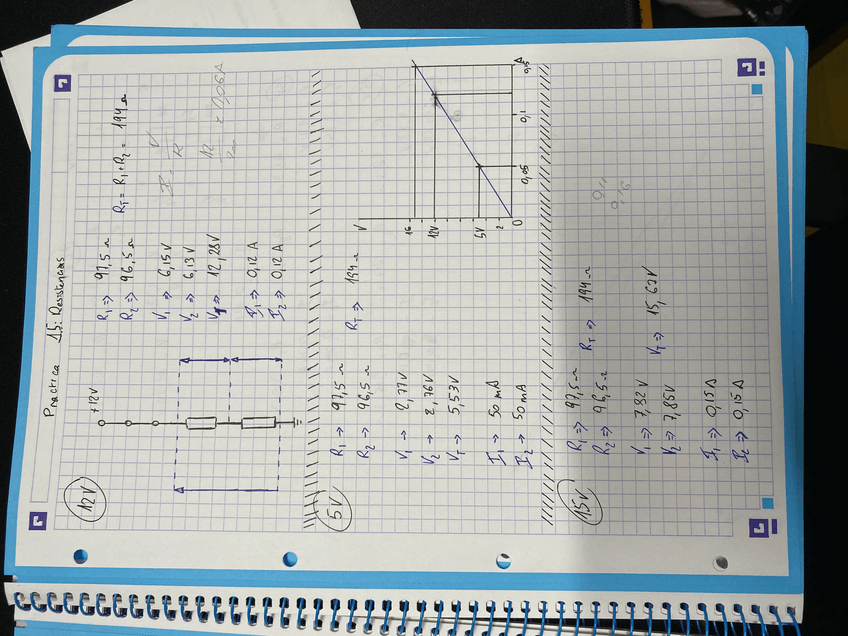 Practica 1.5: Resistencias
12V
+12V
R1 => 97,5 Ω
R2 => 96,5 Ω
RT = R1 + R2 = 194 Ω
V1 => 6,15 V
V2 => 6,13 V
VT => 12,28V
I1 => 0,12 A
I2 => 0,12 A
I = V/R
5V
R1 → 97,5 Ω
R2 → 96,5 Ω
RT => 194 Ω
V1 → 2,77V
V2 → 2,76V
VT → 5,53V
I1 → 50 mA
I2 → 50 mA
V
16
12V
5V
2
0
0,05
0,1
0,15
A
15V
R1 => 97,5 Ω
R2 => 96,5 Ω
RT => 194 Ω
V1 => 7,82 V
V2 => 7,85V
VT => 15,67V
I1 => 0,15 A
I2 => 0,15 A